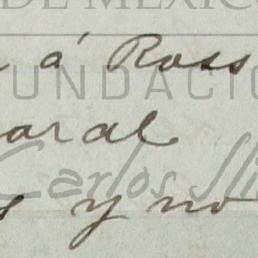 DE MÉXICO
á Ross
FUNDACIÓ
oral
Carlos Sli
y no